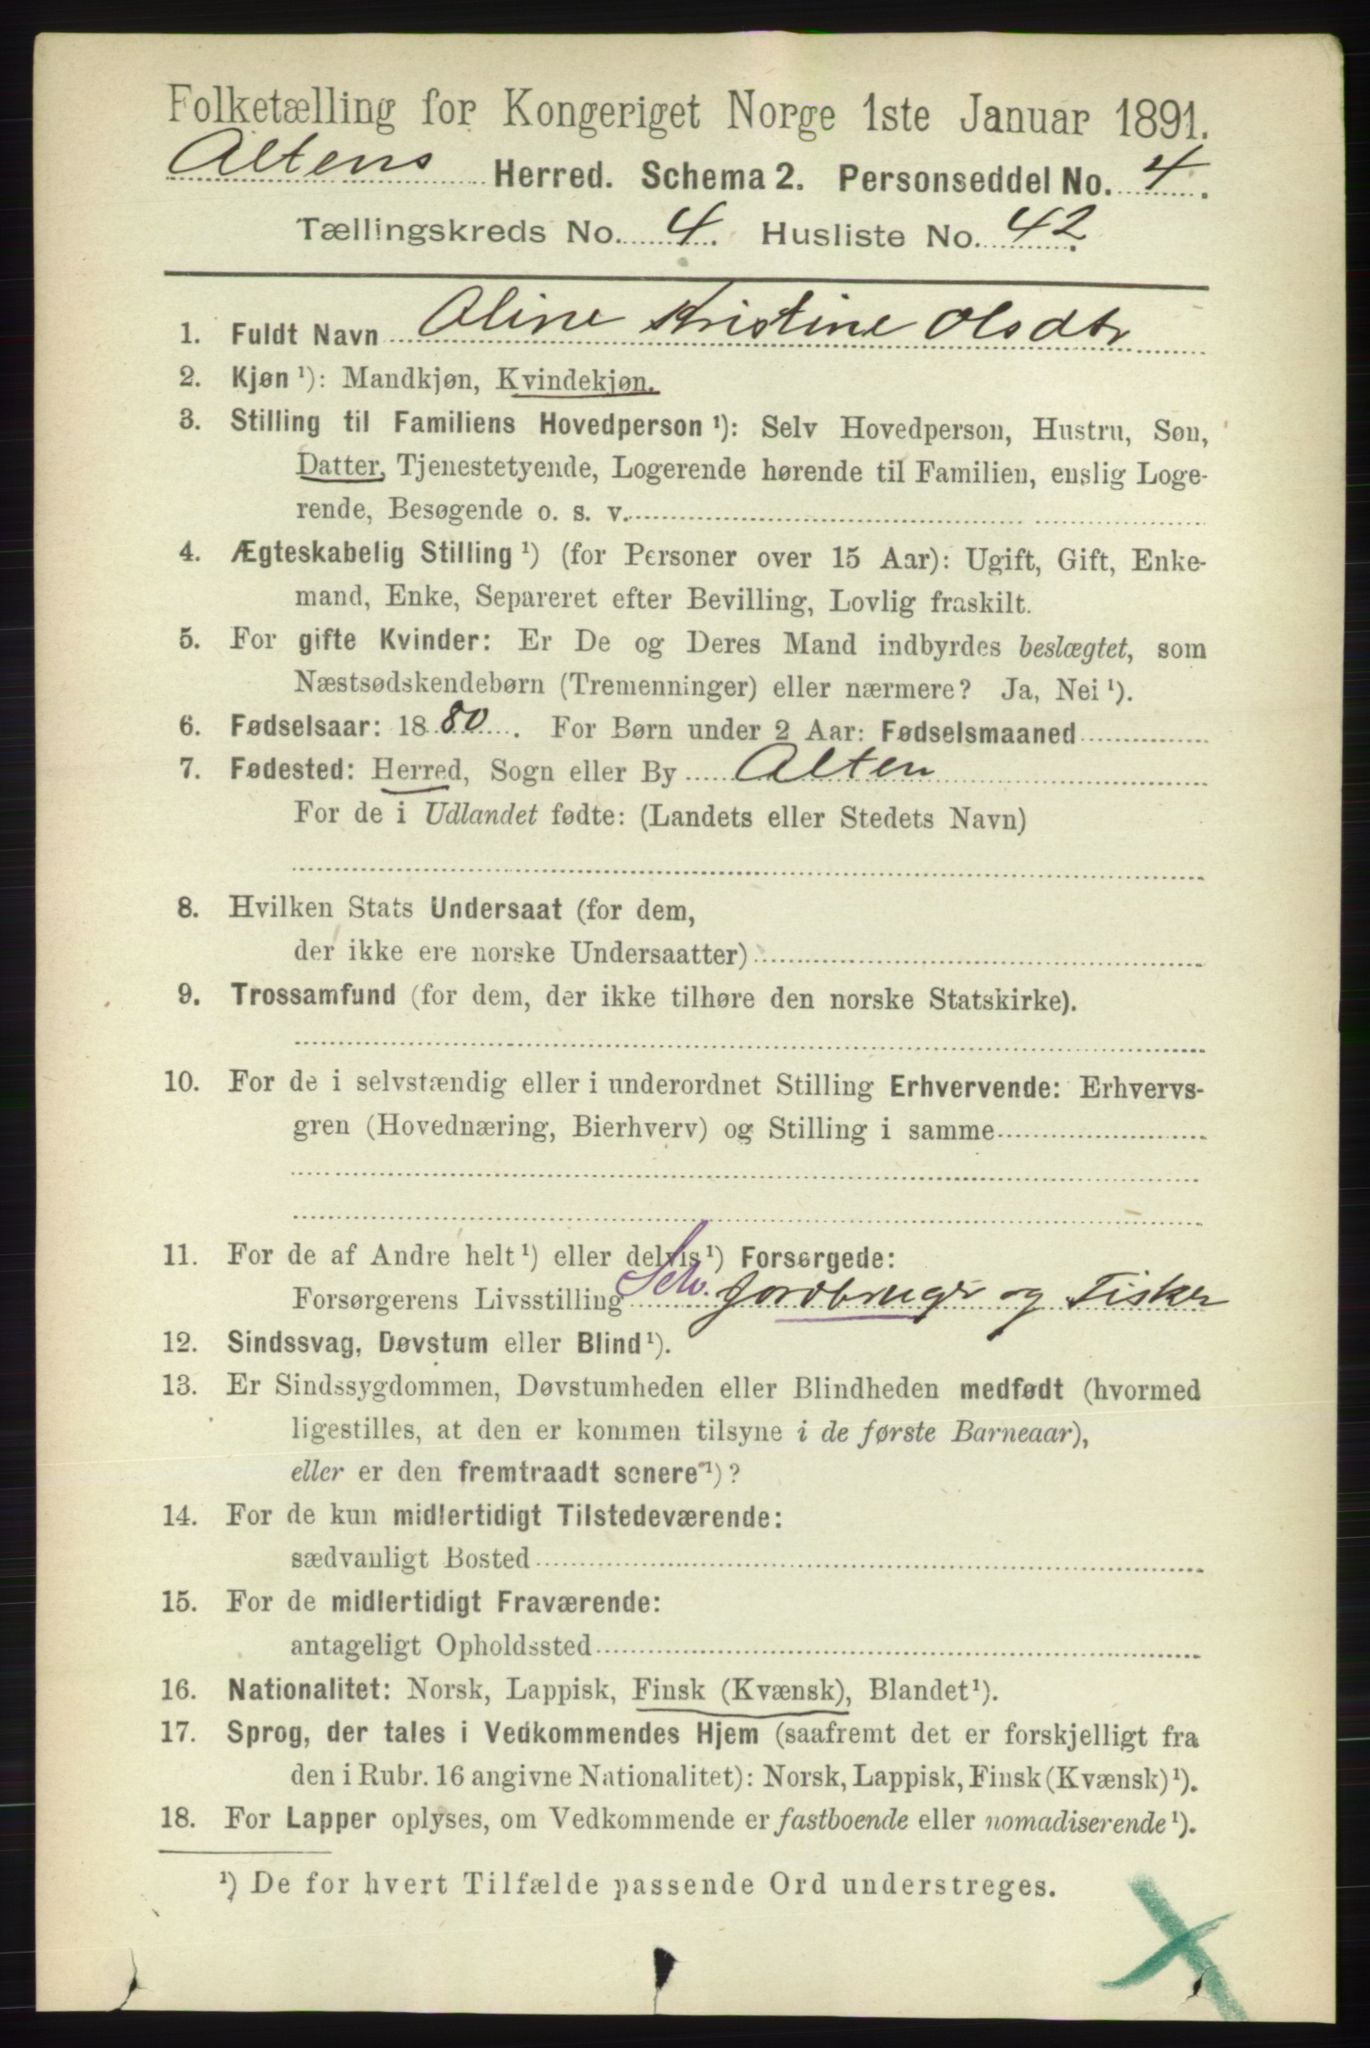 Folketælling for Kongeriget Norge 1ste Januar 1891.
Altens Herred. Schema 2. Personseddel No. 4.
Tællingskreds No. 4. Husliste No. 42.
1. Fuldt Navn Oline Kristine Olsdtr
2. Kjøn ¹): Mandkjøn, Kvindekjøn.
3. Stilling til Familiens Hovedperson ¹): Selv Hovedperson, Hustru, Søn,
Datter, Tjenestetyende, Logerende hørende til Familien, enslig Loge-
rende, Besøgende o. s. v.
4. Ægteskabelig Stilling ¹) (for Personer over 15 Aar): Ugift, Gift, Enke-
mand, Enke, Separeret efter Bevilling, Lovlig fraskilt.
5. For gifte Kvinder: Er De og Deres Mand indbyrdes beslægtet, som
Næstsødskendebørn (Tremenninger) eller nærmere? Ja, Nei ¹).
6. Fødselsaar: 1880. For Børn under 2 Aar: Fødselsmaaned
7. Fødested: Herred, Sogn eller By Alten
For de i Udlandet fødte: (Landets eller Stedets Navn)
8. Hvilken Stats Undersaat (for dem,
der ikke ere norske Undersaatter)
9. Trossamfund (for dem, der ikke tilhøre den norske Statskirke).
10. For de i selvstændig eller i underordnet Stilling Erhvervende: Erhvervs-
gren (Hovednæring, Bierhverv) og Stilling i samme
11. For de af Andre helt ¹) eller delvis ¹) Forsørgede:
Forsørgerens Livsstilling Selv. Jordbruger og Fisker
12. Sindssvag, Døvstum eller Blind ¹).
13. Er Sindssygdommen, Døvstumheden eller Blindheden medfødt (hvormed
ligestilles, at den er kommen tilsyne i de første Barneaar),
eller er den fremtraadt senere ¹)?
14. For de kun midlertidigt Tilstedeværende:
sædvanligt Bosted
15. For de midlertidigt Fraværende:
antageligt Opholdssted
16. Nationalitet: Norsk, Lappisk, Finsk (Kvænsk), Blandet ¹).
17. Sprog, der tales i Vedkommendes Hjem (saafremt det er forskjelligt fra
den i Rubr. 16 angivne Nationalitet): Norsk, Lappisk, Finsk (Kvænsk) ¹).
18. For Lapper oplyses, om Vedkommende er fastboende eller nomadiserende ¹).
¹) De for hvert Tilfælde passende Ord understreges.